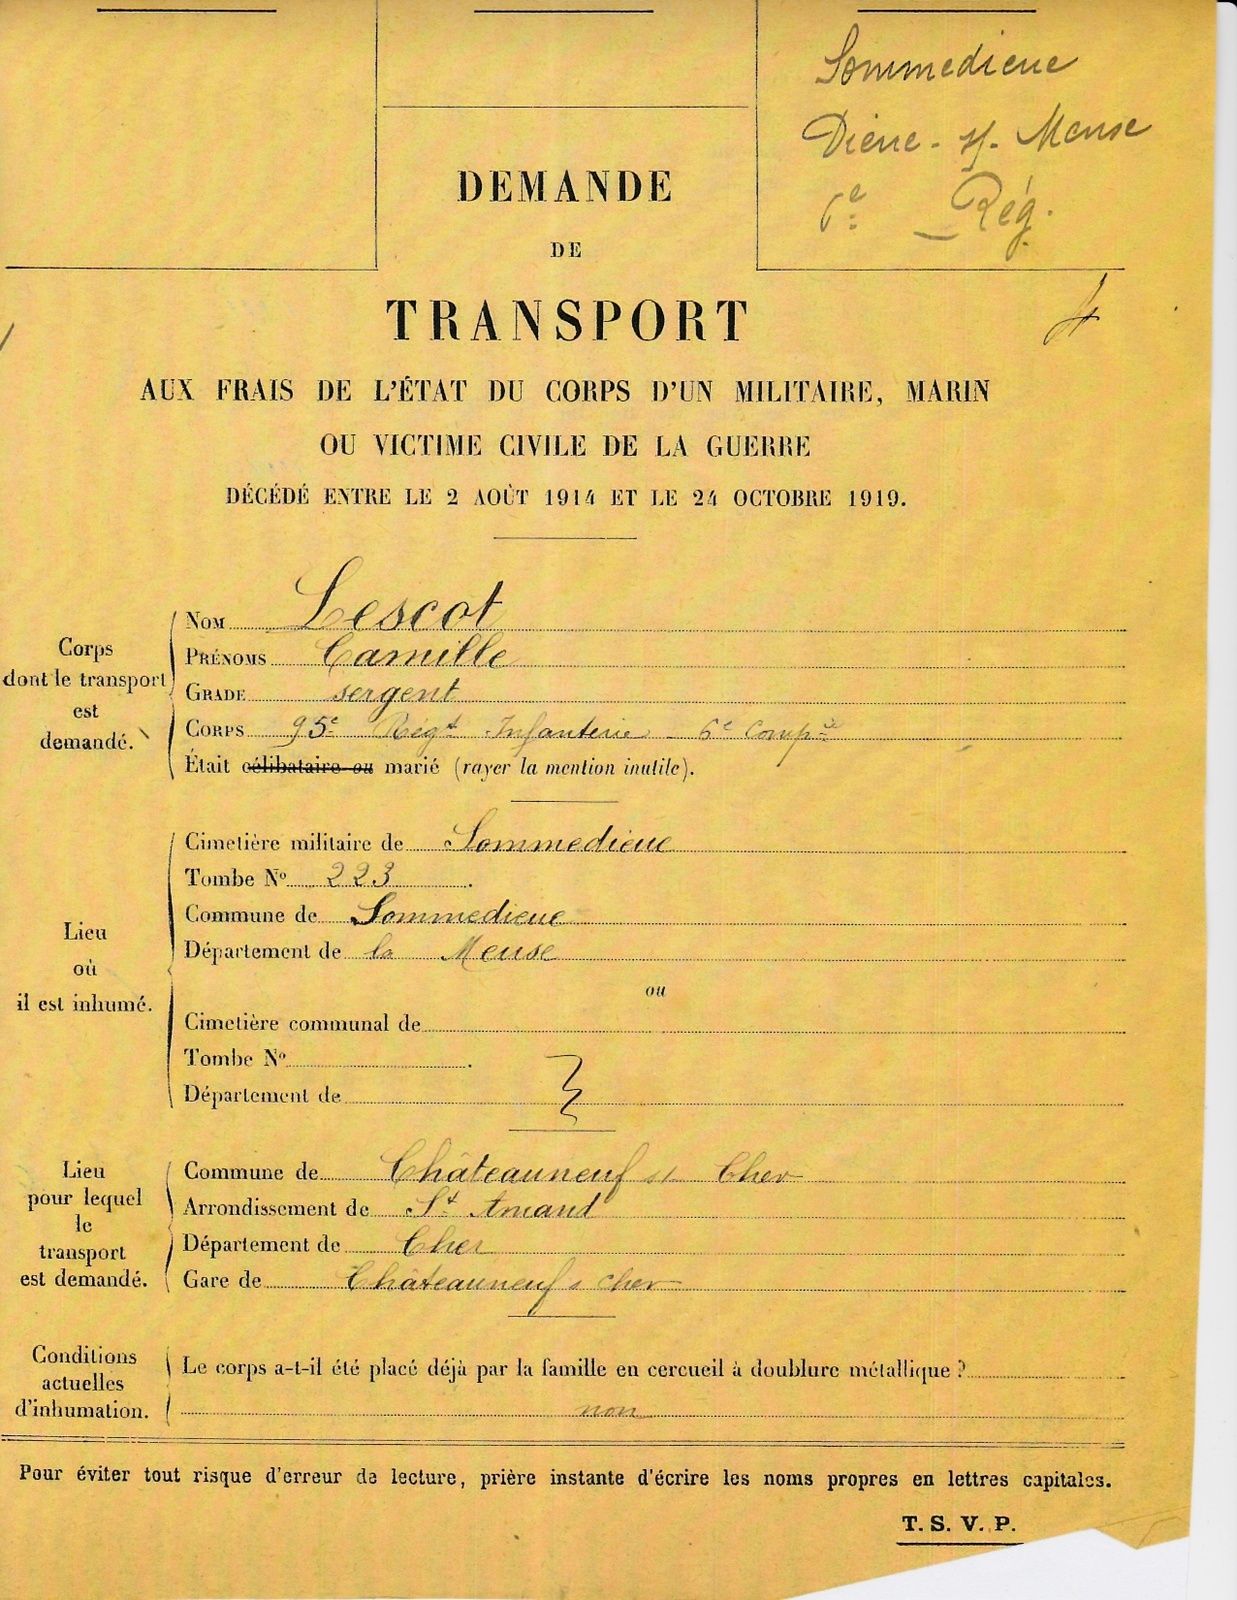 Sommedieue
Dieue - s/- Meuse
6e Rég.
DEMANDE
DE
TRANSPORT
AUX FRAIS DE L'ÉTAT DU CORPS D'UN MILITAIRE, MARIN
OU VICTIME CIVILE DE LA GUERRE
DÉCÉDÉ ENTRE LE 2 AOÛT 1914 ET LE 24 OCTOBRE 1919.
Corps
dont le transport
est
demandé.
Nom Lescot
Prénoms Camille
Grade sergent
Corps 95e Régt Infanterie - 6e Compie
Était célibataire ou marié (rayer la mention inutile).
Lieu
où
il est inhumé.
Cimetière militaire de Sommedieue
Tombe No 223.
Commune de Sommedieue
Département de la Meuse
ou
Cimetière communal de
Tombe No .
Département de
Lieu
pour lequel
le
transport
est demandé.
Commune de Châteauneuf s/ Cher
Arrondissement de St Amand
Département de Cher
Gare de Châteauneuf s Cher
Conditions
actuelles
d'inhumation.
Le corps a-t-il été placé déjà par la famille en cercueil à doublure métallique ?
non
Pour éviter tout risque d'erreur de lecture, prière instante d'écrire les noms propres en lettres capitales.
T. S. V. P.